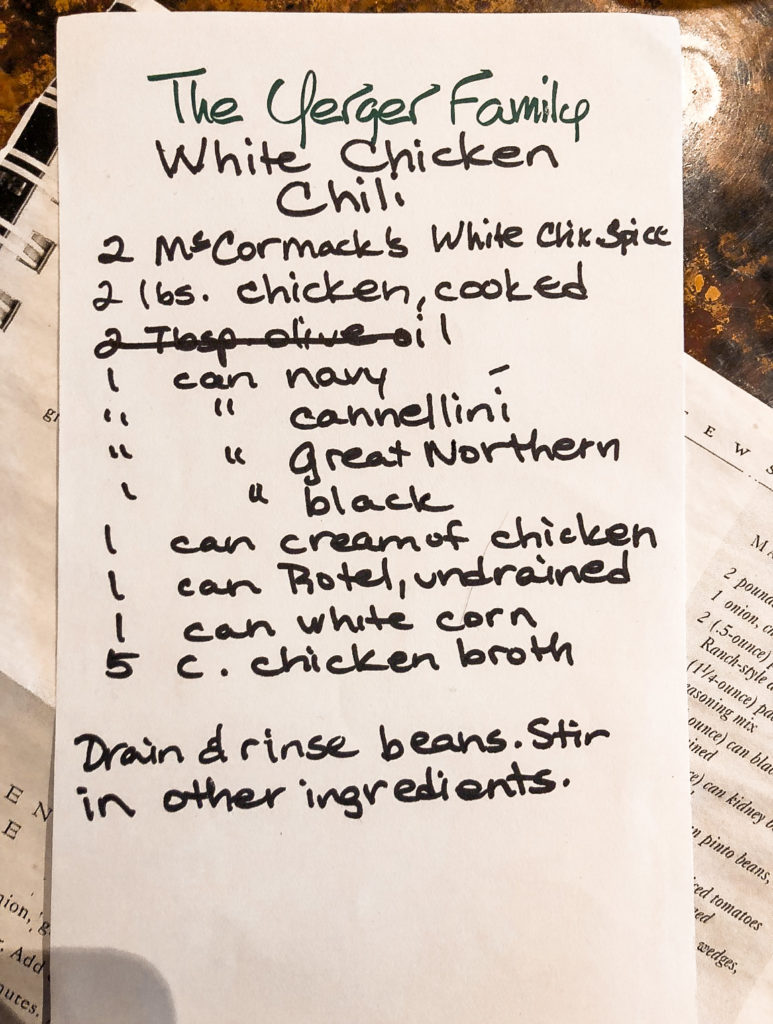 The Yerger Family
White Chicken
Chili
2 McCormack's White Chix Spice
2 lbs. chicken, cooked
2 Tbsp. olive oil
1 can navy
" " cannellini
" " great Northern
" " black
1 can cream of chicken
1 can Rotel, undrained
1 can white corn
5 c. chicken broth
Drain & rinse beans. Stir
in other ingredients.
E W S
2 pound
1 onion, c
2 (.5-ounce) p
Ranch-style
(1 1/4-ounce) pa
easoning mix
ounce) can bla
ined
e) can kidney b
n pinto beans,
iced tomatoes
wedges,
E N
E
nion, g
. Add
nutes.